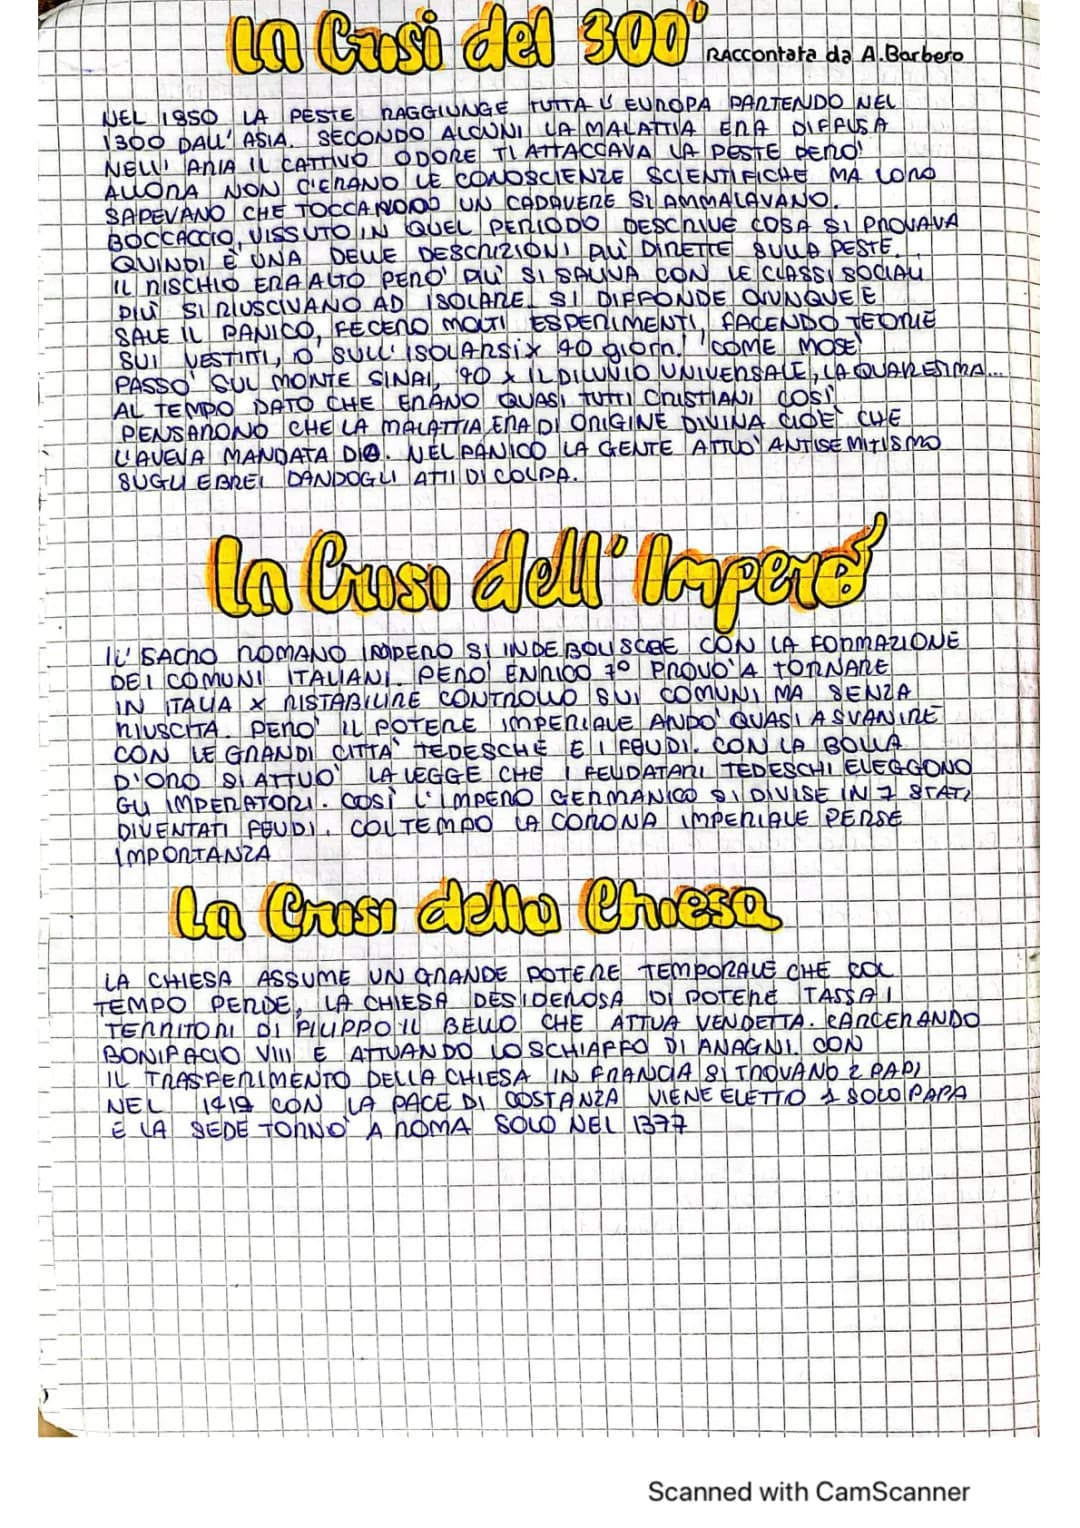 La Crisi del 300'
Raccontata da A.Barbero
NEL 1350 LA PESTE RAGGIUNGE TUTTA L'EUROPA PARTENDO NEL
1300 DALL'ASIA. SECONDO ALCUNI LA MALATTIA ERA DIFFUSA
NELL'ARIA IL CATTIVO ODORE TI ATTACCAVA LA PESTE PERO'
ALLORA NON C'ERANO LE CONOSCIENZE SCIENTIFICHE MA LORO
SAPEVANO CHE TOCCANDO UN CADAVERE SI AMMALAVANO.
BOCCACCIO, VISSUTO IN QUEL PERIODO DESCRIVE COSA SI PROVAVA
QUINDI È UNA DELLE DESCRIZIONI PIU' DIRETTE SULLA PESTE.
IL RISCHIO ERA ALTO PERO' PIU' SI SALIVA CON LE CLASSI SOCIALI
PIU' SI RIUSCIVANO AD ISOLARE. SI DIFFONDE OVUNQUE E
SALE IL PANICO, FECERO MOLTI ESPERIMENTI, FACENDO TEORIE
SUI VESTITI, O SULL'ISOLARSI x 40 giorni "COME MOSE'
PASSO' SUL MONTE SINAI, 40 x IL DILUVIO UNIVERSALE, LA QUARESIMA...
AL TEMPO DATO CHE ERANO QUASI TUTTI CRISTIANI COSI'
PENSARONO CHE LA MALATTIA ERA DI ORIGINE DIVINA CIOE' CHE
L'AVEVA MANDATA DIO. NEL PANICO LA GENTE ATTUO' ANTISEMITISMO
SUGLI EBREI DANDOGLI ATTI DI COLPA.
La Crisi dell'Impero
IL SACRO ROMANO IMPERO SI INDEBOLISCE CON LA FORMAZIONE
DEI COMUNI ITALIANI. PERO' ENRICO 7° PROVO' A TORNARE
IN ITALIA x RISTABILIRE CONTROLLO SUI COMUNI MA SENZA
RIUSCITA. PERO' IL POTERE IMPERIALE ANDO' QUASI A SVANIRE
CON LE GRANDI CITTA' TEDESCHE E I FEUDI. CON LA BOLLA
D'ORO SI ATTUO' LA LEGGE CHE I FEUDATARI TEDESCHI ELEGGONO
GLI IMPERATORI. COSI' L'IMPERO GERMANICO SI DIVISE IN 7 STATI,
DIVENTATI FEUDI. COL TEMPO LA CORONA IMPERIALE PERSE
IMPORTANZA
La Crisi della Chiesa
LA CHIESA ASSUME UN GRANDE POTERE TEMPORALE CHE COL
TEMPO PERDE, LA CHIESA DESIDEROSA DI POTERE TASSA I
TERRITORI DI FILIPPO IL BELLO CHE ATTUA VENDETTA. CARCERANDO
BONIFACIO VIII E ATTUANDO LO SCHIAFFO DI ANAGNI. CON
IL TRASFERIMENTO DELLA CHIESA IN FRANCIA SI TROVANO 2 PAPI
NEL 1419 CON LA PACE DI COSTANZA VIENE ELETTO 1 SOLO PAPA
E LA SEDE TORNO' A ROMA SOLO NEL 1377
Scanned with CamScanner